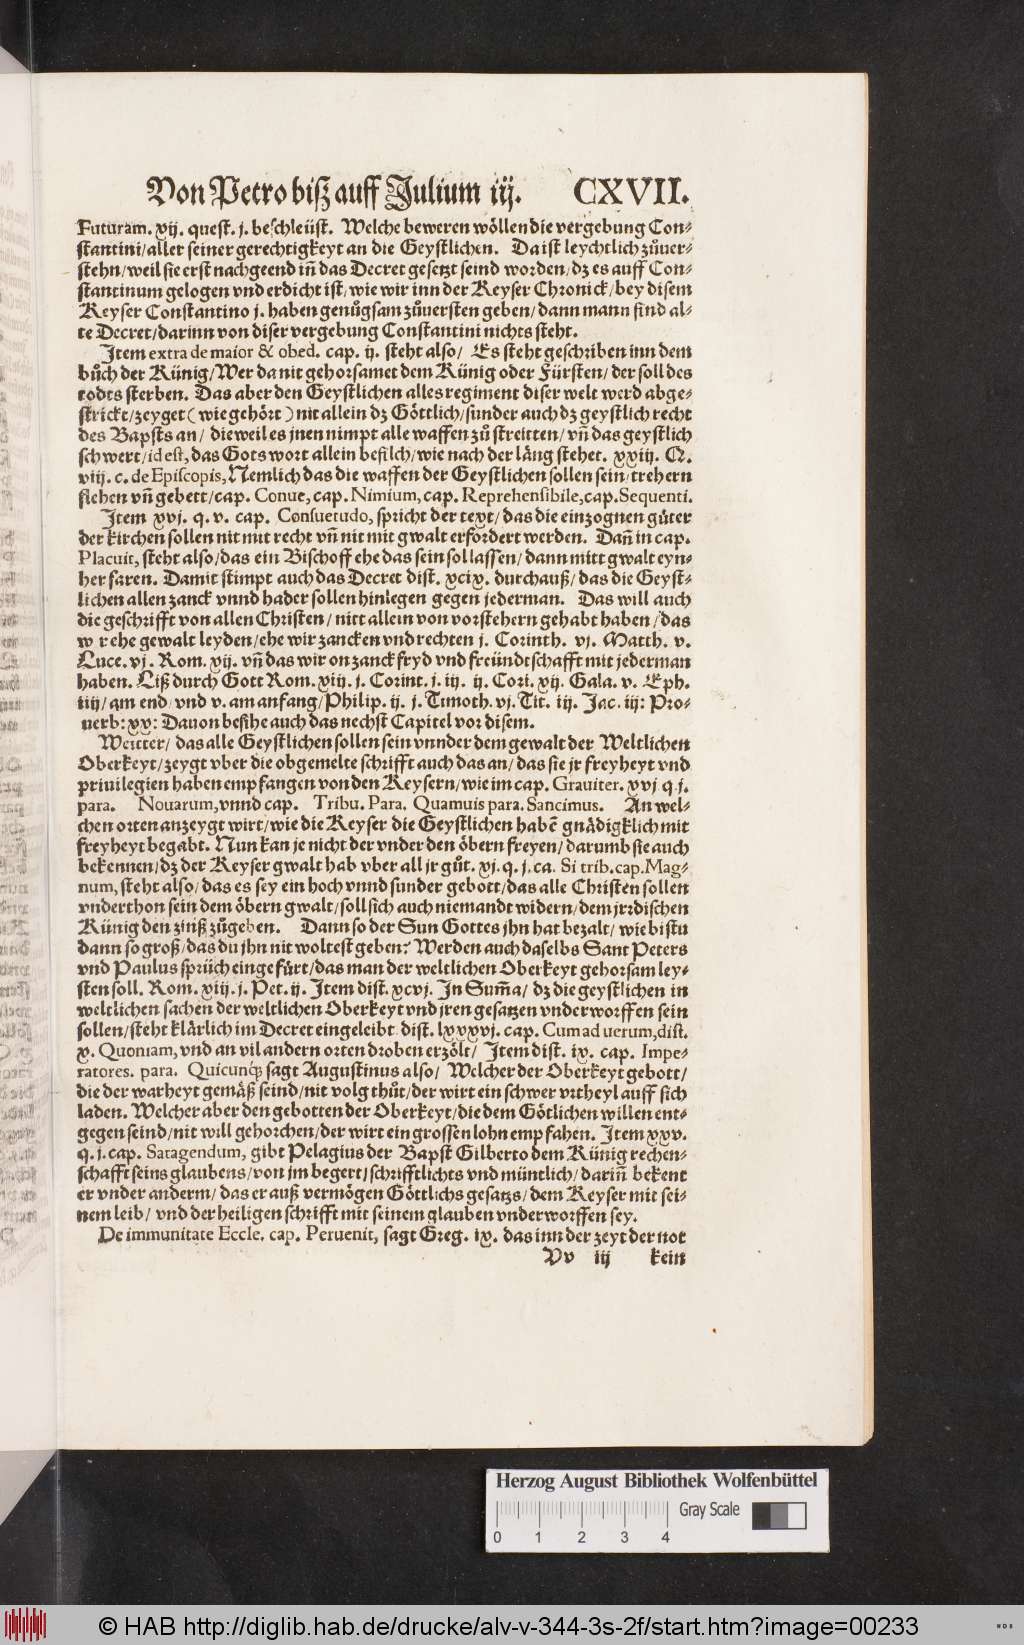 Von Petro biß auff Julium iij. CXVII.
Futuram. xij. quest. j. beschleüst. Welche beweren wöllen die vergebung Con-
stantini/aller seiner gerechtigkeyt an die Geystlichen. Da ist leychtlich zůuer-
stehn/weil sie erst nachgeend iñ das Decret gesetzt seind worden/dz es auff Con-
stantinum gelogen vnd erdicht ist/wie wir inn der Keyser Chronick/bey disem
Keyser Constantino j. haben genůgsam zůuersten geben/dann mann find al-
te Decret/darinn von diser vergebung Constantini nichts steht.
Item extra de maior & obed. cap. ij. steht also/ Es steht geschriben inn dem
bůch der Künig/Wer da nit gehorsamet dem Künig oder Fürsten/der soll des
todts sterben. Das aber den Geystlichen alles regiment diser welt werd abge-
strickt/zeyget (wie gehört) nit allein dz Göttlich/sunder auch dz geystlich recht
des Bapsts an/ die weil es jnen nimpt alle waffen zů streitten/vñ das geystlich
schwert/id est, das Gots wort allein befilch/wie nach der läng stehet. xxiij. Q.
viij. c. de Episcopis, Nemlich das die waffen der Geystlichen sollen sein/trehern
flehen vñ gebett/cap. Conue, cap. Nimium, cap. Reprehensibile, cap. Sequenti.
Item xvj. q. v. cap. Consuetudo, spricht der text/das die einzognen gůter
der kirchen sollen nit mit recht vñ nit mit gwalt erfordert werden. Dañ in cap.
Placuit, steht also/das ein Bischoff ehe das sein sol lassen/dann mitt gwalt eyn-
her faren. Damit stimpt auch das Decret dist. xcix. durchauß/das die Geyst-
lichen allen zanck vnnd hader sollen hinlegen gegen jederman. Das will auch
die geschrifft von allen Christen/nitt allein von vorstehern gehabt haben/das
w r ehe gewalt leyden/ehe wir zancken vnd rechten j. Corinth. vj. Matth. v.
Luce. vj. Rom. xij. vñ das wir on zanck fryd vnd freündtschafft mit jederman
haben. Liß durch Gott Rom. xiij. j. Corint. j. iij. ij. Cori. xij. Gala. v. Eph.
iiij/am end, vnd v. am anfang/Philip. ij. j. Timoth. vj. Tit. iij. Jac. iij: Pro-
uerb: xx: Dauon besihe auch das nechst Capitel vor disem.
Weitter/das alle Geystlichen sollen sein vnnder dem gewalt der Weltlichen
Oberkeyt/zeygt vber die obgemelte schrifft auch das an/das sie jr freyheyt vnd
priuilegien haben empfangen von den Keysern/wie im cap. Grauiter. xvj q. j.
para. Nouarum, vnnd cap. Tribu. Para. Quamuis para. Sancimus. An wel-
chen orten anzeygt wirt/wie die Keyser die Geystlichen habẽ gnädigklich mit
freyheyt begabt. Nun kan je nicht der vnder den öbern freyen/darumb sie auch
bekennen/dz der Keyser gwalt hab vber all jr gůt. xj. q. j. ca. Si trib. cap. Mag-
num, steht also/das es sey ein hoch vnnd sunder gebott/das alle Christen sollen
vnderthon sein dem öbern gwalt/soll sich auch niemandt widern/dem jrzdischen
Künig den zinß zůgeben. Dann so der Sun Gottes jhn hat bezalt/wie bistu
dann so groß/das du jhn nit woltest geben? Werden auch daselbs Sant Peters
vnd Paulus sprüch eingefürt/das man der weltlichen Oberkeyt gehorsam ley-
sten soll. Rom. xiij. j. Pet. ij. Item dist. xcvj. In Sum̃a/dz die geystlichen in
weltlichen sachen der weltlichen Oberkeyt vnd jren gesatzen vnderworffen sein
sollen/steht klärlich im Decret eingeleibt dist. lxxxvj. cap. Cum ad uerum, dist.
x. Quoniam, vnd an vil andern orten droben erzölt/ Item dist. ix. cap. Impe-
ratores. para. Quicunq; sagt Augustinus also/ Welcher der Oberkeyt gebott/
die der warheyt gemäß seind/nit volg thůt/der wirt ein schwer vrtheyl auff sich
laden. Welcher aber den gebotten der Oberkeyt/die dem Götlichen willen ent-
gegen seind/nit will gehorchen/der wirt ein grossen lohn empfahen. Item xxv.
q. j. cap. Satagendum, gibt Pelagius der Bapst Gilberto dem Künig rechen-
schafft seins glaubens/von jm begert/schrifftlichts vnd müntlich/dariñ bekent
er vnder anderm/das er auß vermögen Göttlichs gesatzs/dem Keyser mit sei-
nem leib/ vnd der heiligen schrifft mit seinem glauben vnderworffen sey.
De immunitate Eccle. cap. Peruenit, sagt Greg. ix. das inn der zeyt der not
Vv iij kein
Herzog August Bibliothek Wolfenbüttel
Gray Scale
0 1 2 3 4
© HAB http://diglib.hab.de/drucke/alv-v-344-3s-2f/start.htm?image=00233